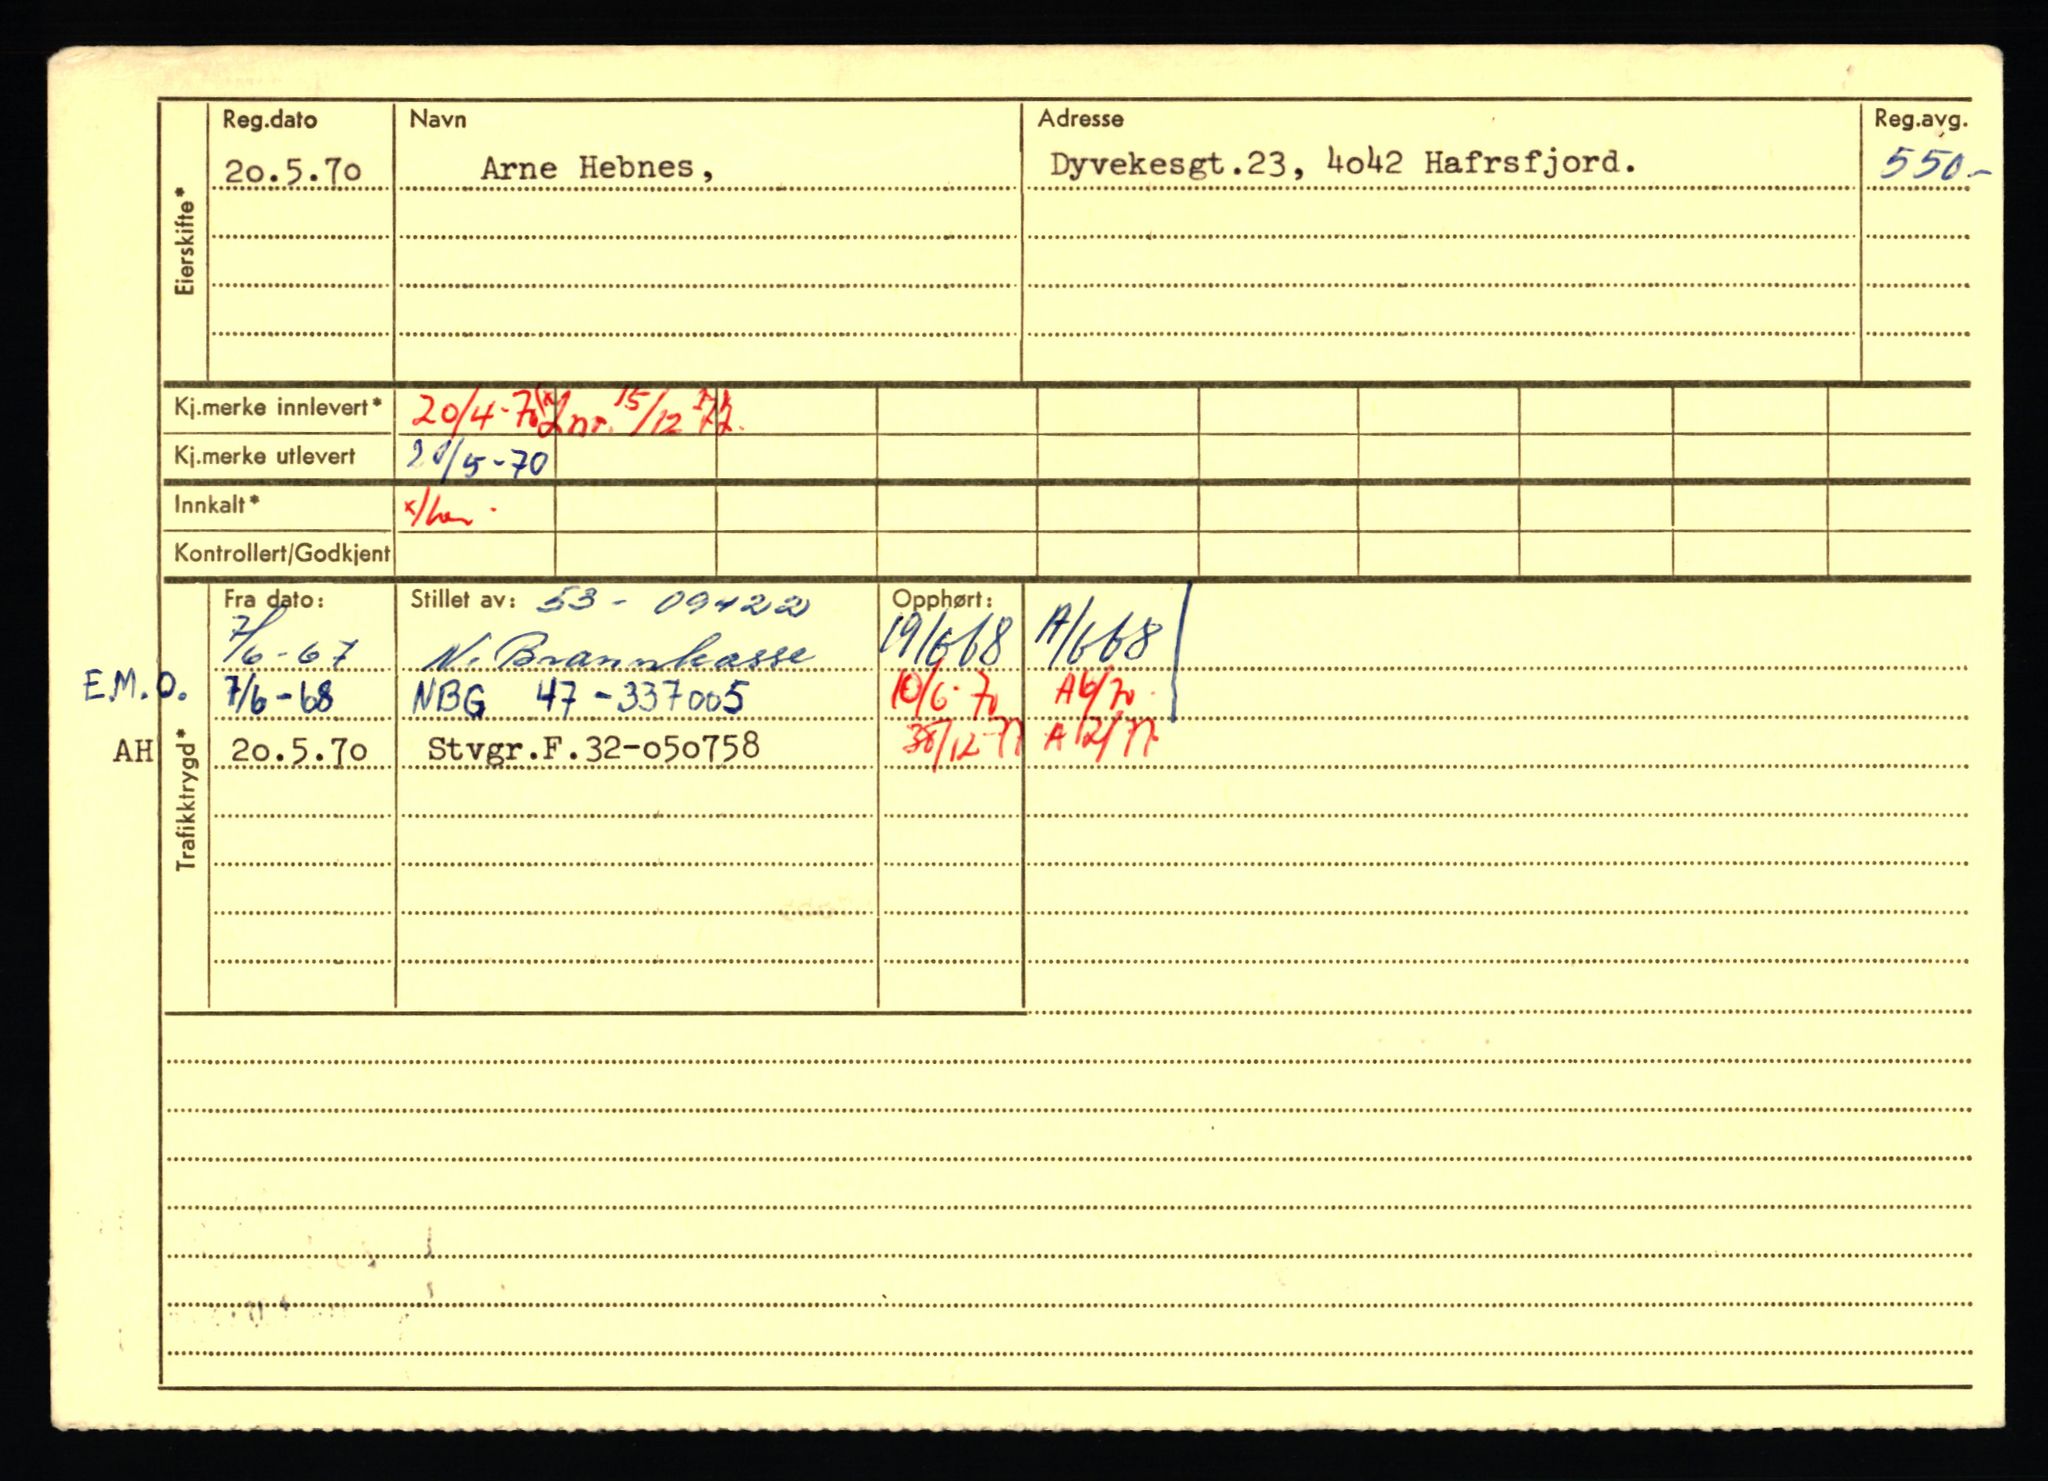 Reg.dato Navn Adresse Reg.avg.
20.5.70 Arne Hebnes, Dyvekesgt.23, 4o42 Hafrsfjord. 550.-
Eierskifte*
Kj.merke innlevert* 20/4-70 2 nr. 15/12 77.
Kj.merke utlevert /5-70
Innkalt*
Kontrollert/Godkjent
Fra dato: Stillet av: 53 - 09422 Opphørt:
7/6-67 N. Brannkasse 19/6 68 A/6 68
E.M.O. 7/6-68 NBG 47-337005 10/6-70 A6/70
AH 20.5.70 Stvgr.F.32-o5o758 /12-77 A 12/77
Trafikktrygd*